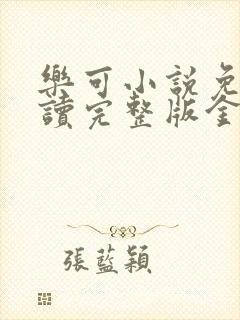 樂可小說免
讀完整版全
張藍穎